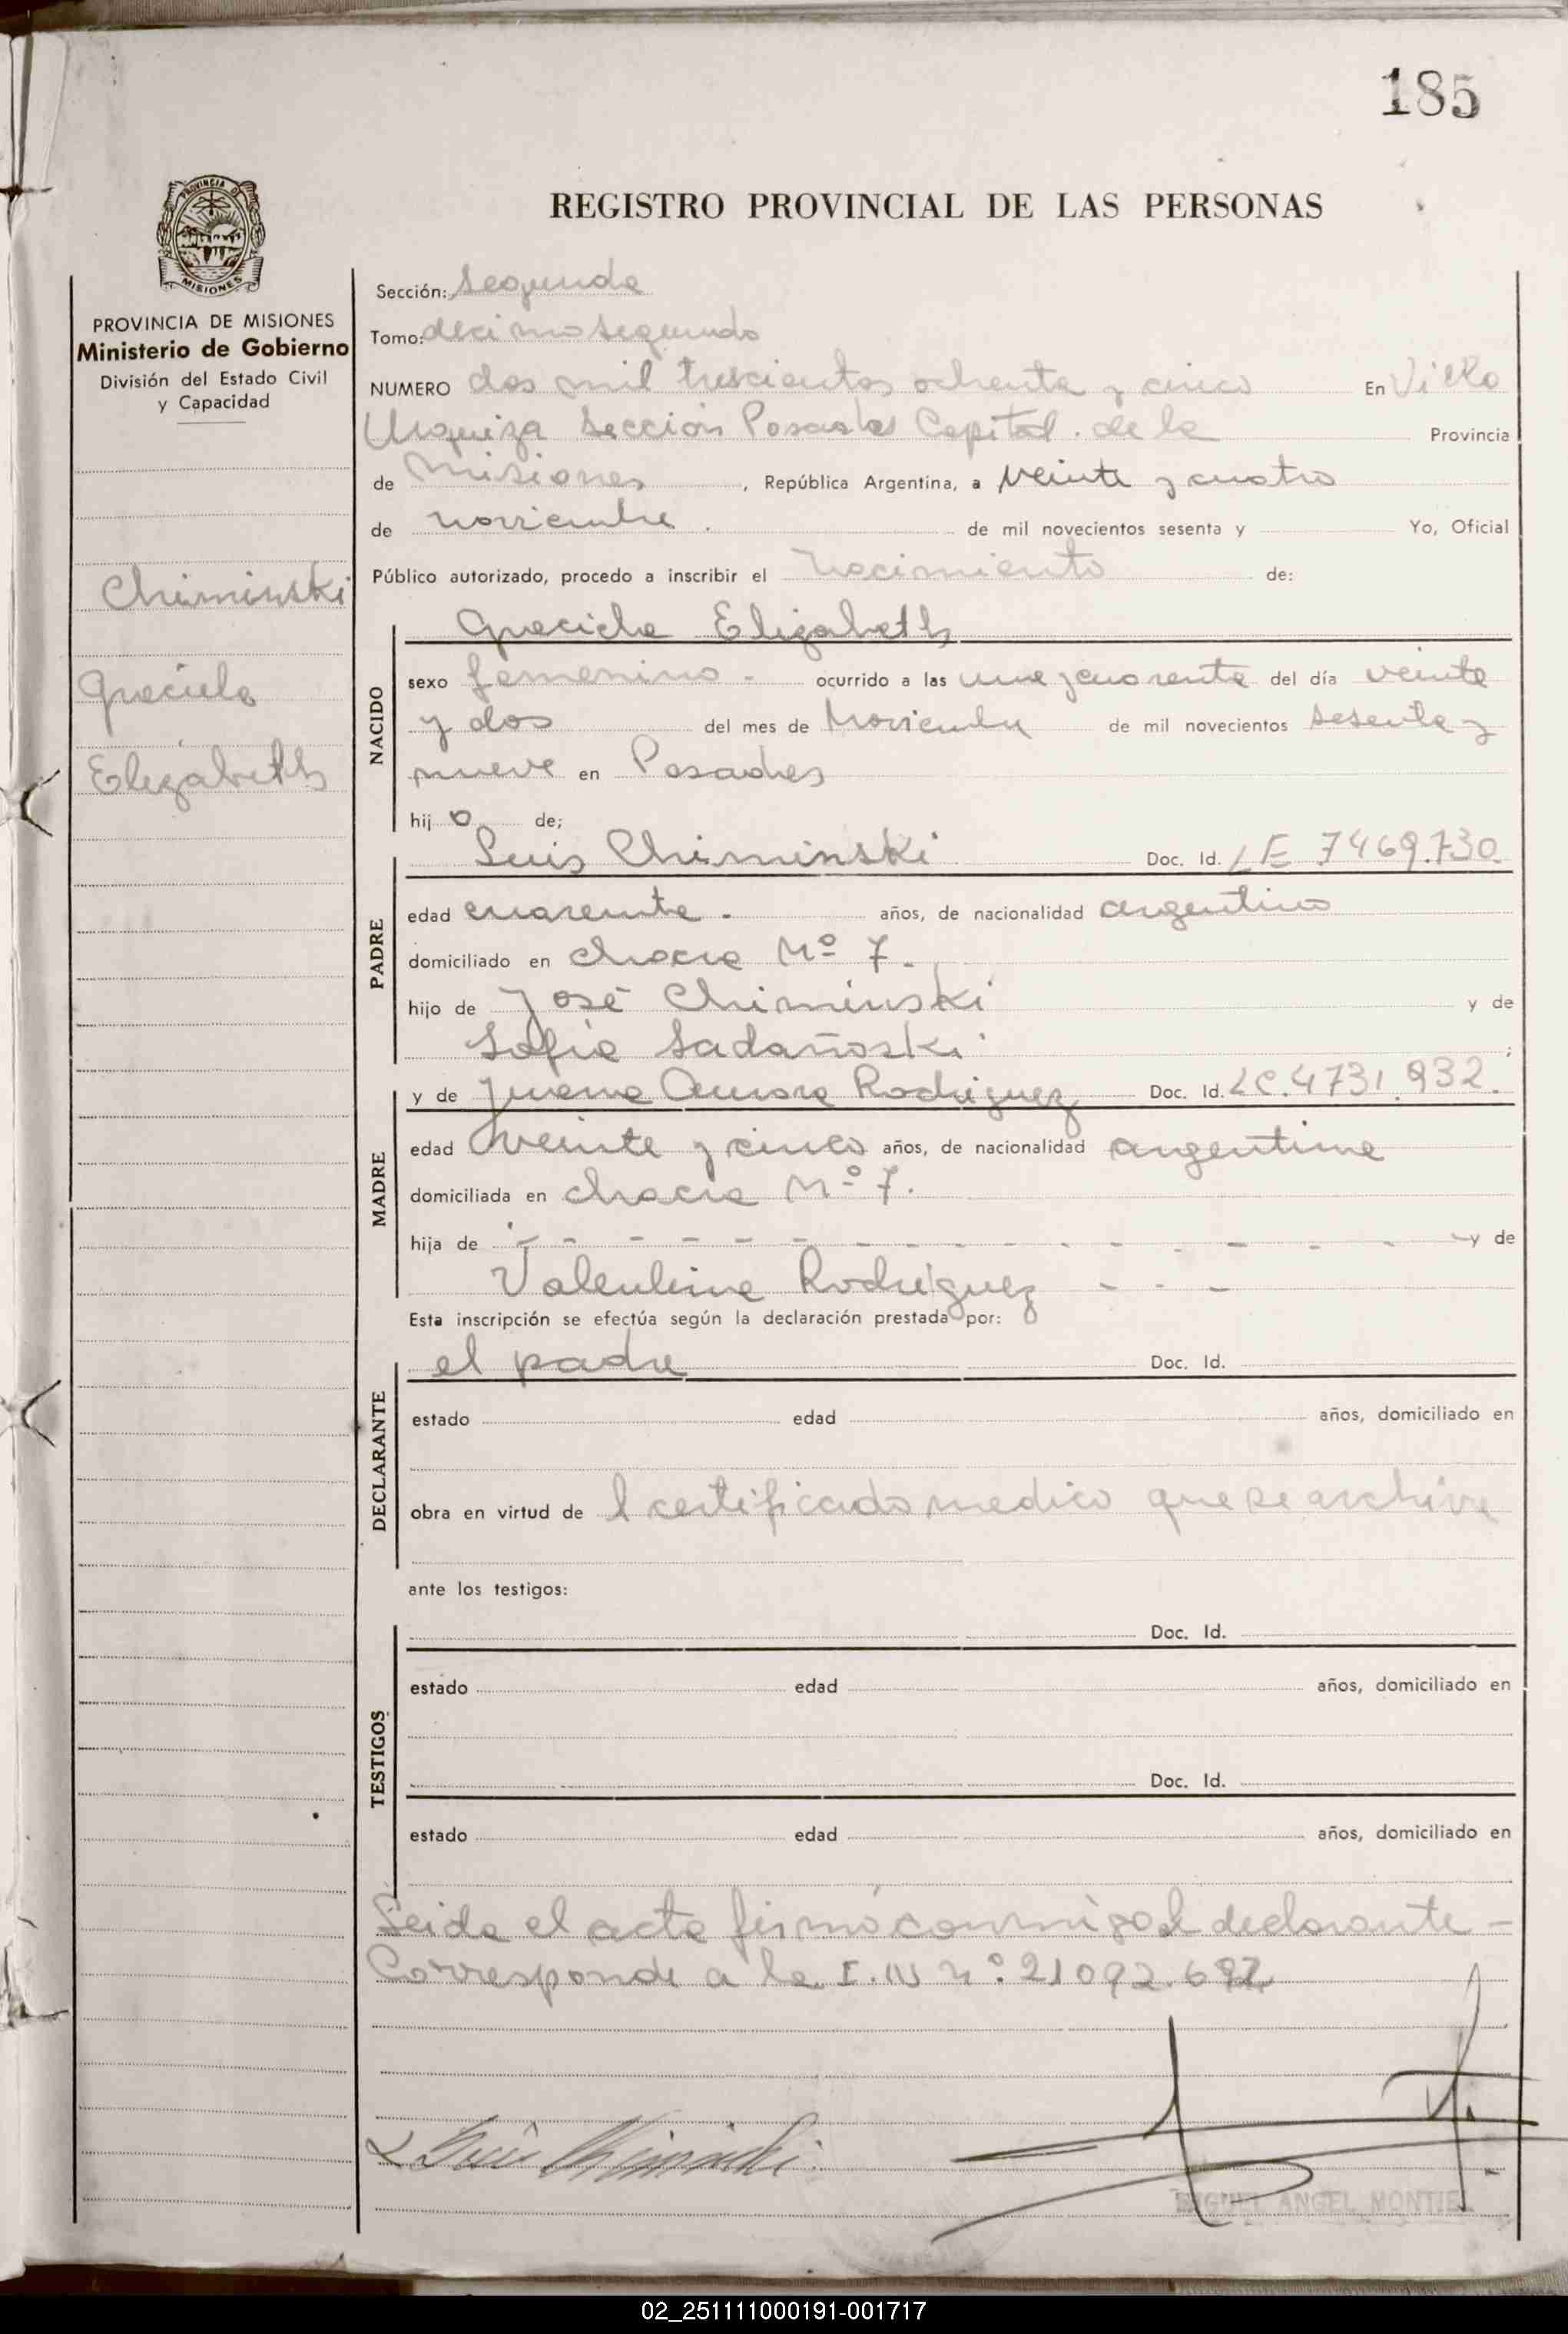 185
PROVINCIA DE
MISIONES
REGISTRO PROVINCIAL DE LAS PERSONAS
PROVINCIA DE MISIONES
Ministerio de Gobierno
División del Estado Civil
y Capacidad
Chiminski
Graciela
Elizabeth
Sección: Segunda
Tomo: decimo segundo
NUMERO dos mil trescientos ochenta y cinco En Villa
Urquiza Sección Posadas Capital. de la Provincia
de Misiones, República Argentina, a veinte y cuatro
de noviembre. de mil novecientos sesenta y Yo, Oficial
Público autorizado, procedo a inscribir el nacimiento de:
NACIDO
Graciela Elizabeth
sexo femenino - ocurrido a las una y cuarenta del día veinte
y dos del mes de Noviembre de mil novecientos sesenta y
nueve en Posadas
hij a de;
PADRE
Luis Chiminski Doc. Id. LE 7469.730.
edad cuarenta - años, de nacionalidad argentino
domiciliado en chacra Nº 7.
hijo de José Chiminski y de
Sofia Sadañoski ;
MADRE
y de Juana Aurora Rodriguez Doc. Id. LC. 4731.932.
edad veinte y cinco años, de nacionalidad argentina
domiciliada en chacra Nº 7.
hija de - - - - - - - - - - - - - - y de
Valentina Rodriguez - - -
Esta inscripción se efectúa según la declaración prestada por:
DECLARANTE
el padre Doc. Id.
estado edad años, domiciliado en
obra en virtud de l certificado medico que se archiva
ante los testigos:
TESTIGOS
Doc. Id.
estado edad años, domiciliado en
Doc. Id.
estado edad años, domiciliado en
Leida el acta firmó conmigo el declarante -
Corresponde a la I. N nº 21092.692
Luis Chiminski
MIGUEL ANGEL MONTIEL
02_251111000191-001717